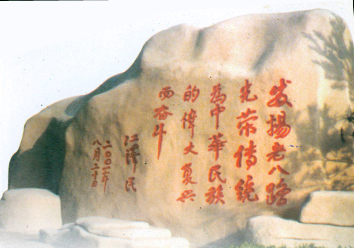 发扬老八路
光荣传统
为中华民族
的伟大复兴
而奋斗
江泽民
二〇〇一年
八月二十日